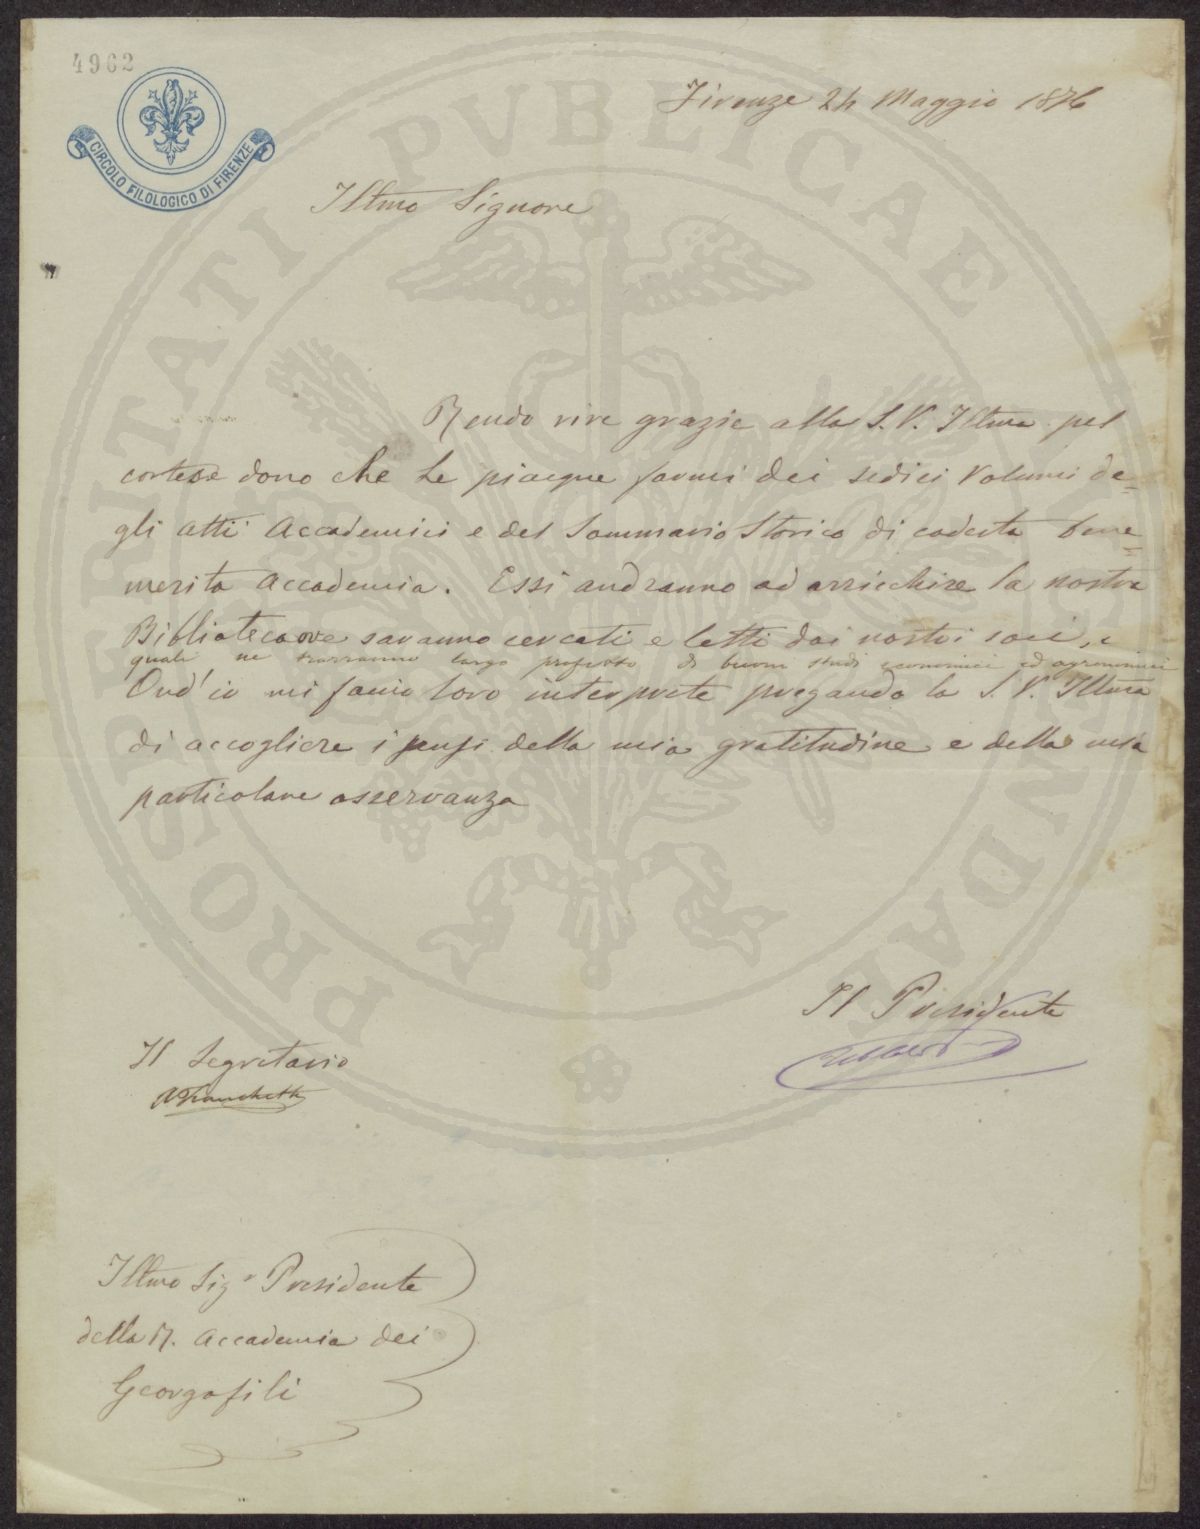 4962
CIRCOLO FILOLOGICO DI FIRENZE
PROSPERITATI PVBLICAE AVGENDAE
Firenze 24 Maggio 1876
Illmo Signore
Rendo vive grazie alla S. V. Illma pel
cortese dono che Le piacque farmi dei sedici Volumi de=
gli atti Accademici e del Sommario Storico di codesta bene=
merita Accademia. Essi andranno ad arricchire la nostra
Biblioteca ove saranno cercati e letti dai nostri soci, i
quali ne trarranno largo profitto di buoni studi economici ed agronomici
Ond'io mi faccio loro interprete pregando la S. V. Illma
di accogliere i sensi della mia gratitudine e della mia
particolare osservanza
Il Presidente
Il Segretario
AFranchetti
Illmo Sigr Presidente
della R. Accademia dei
Georgofili